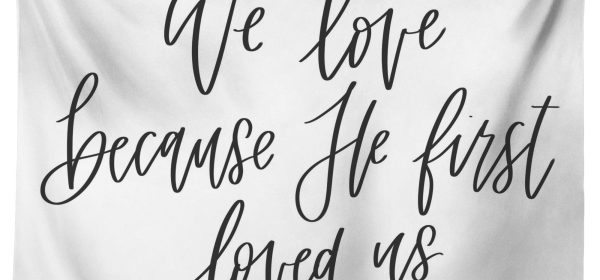 We love
because He first
loved us